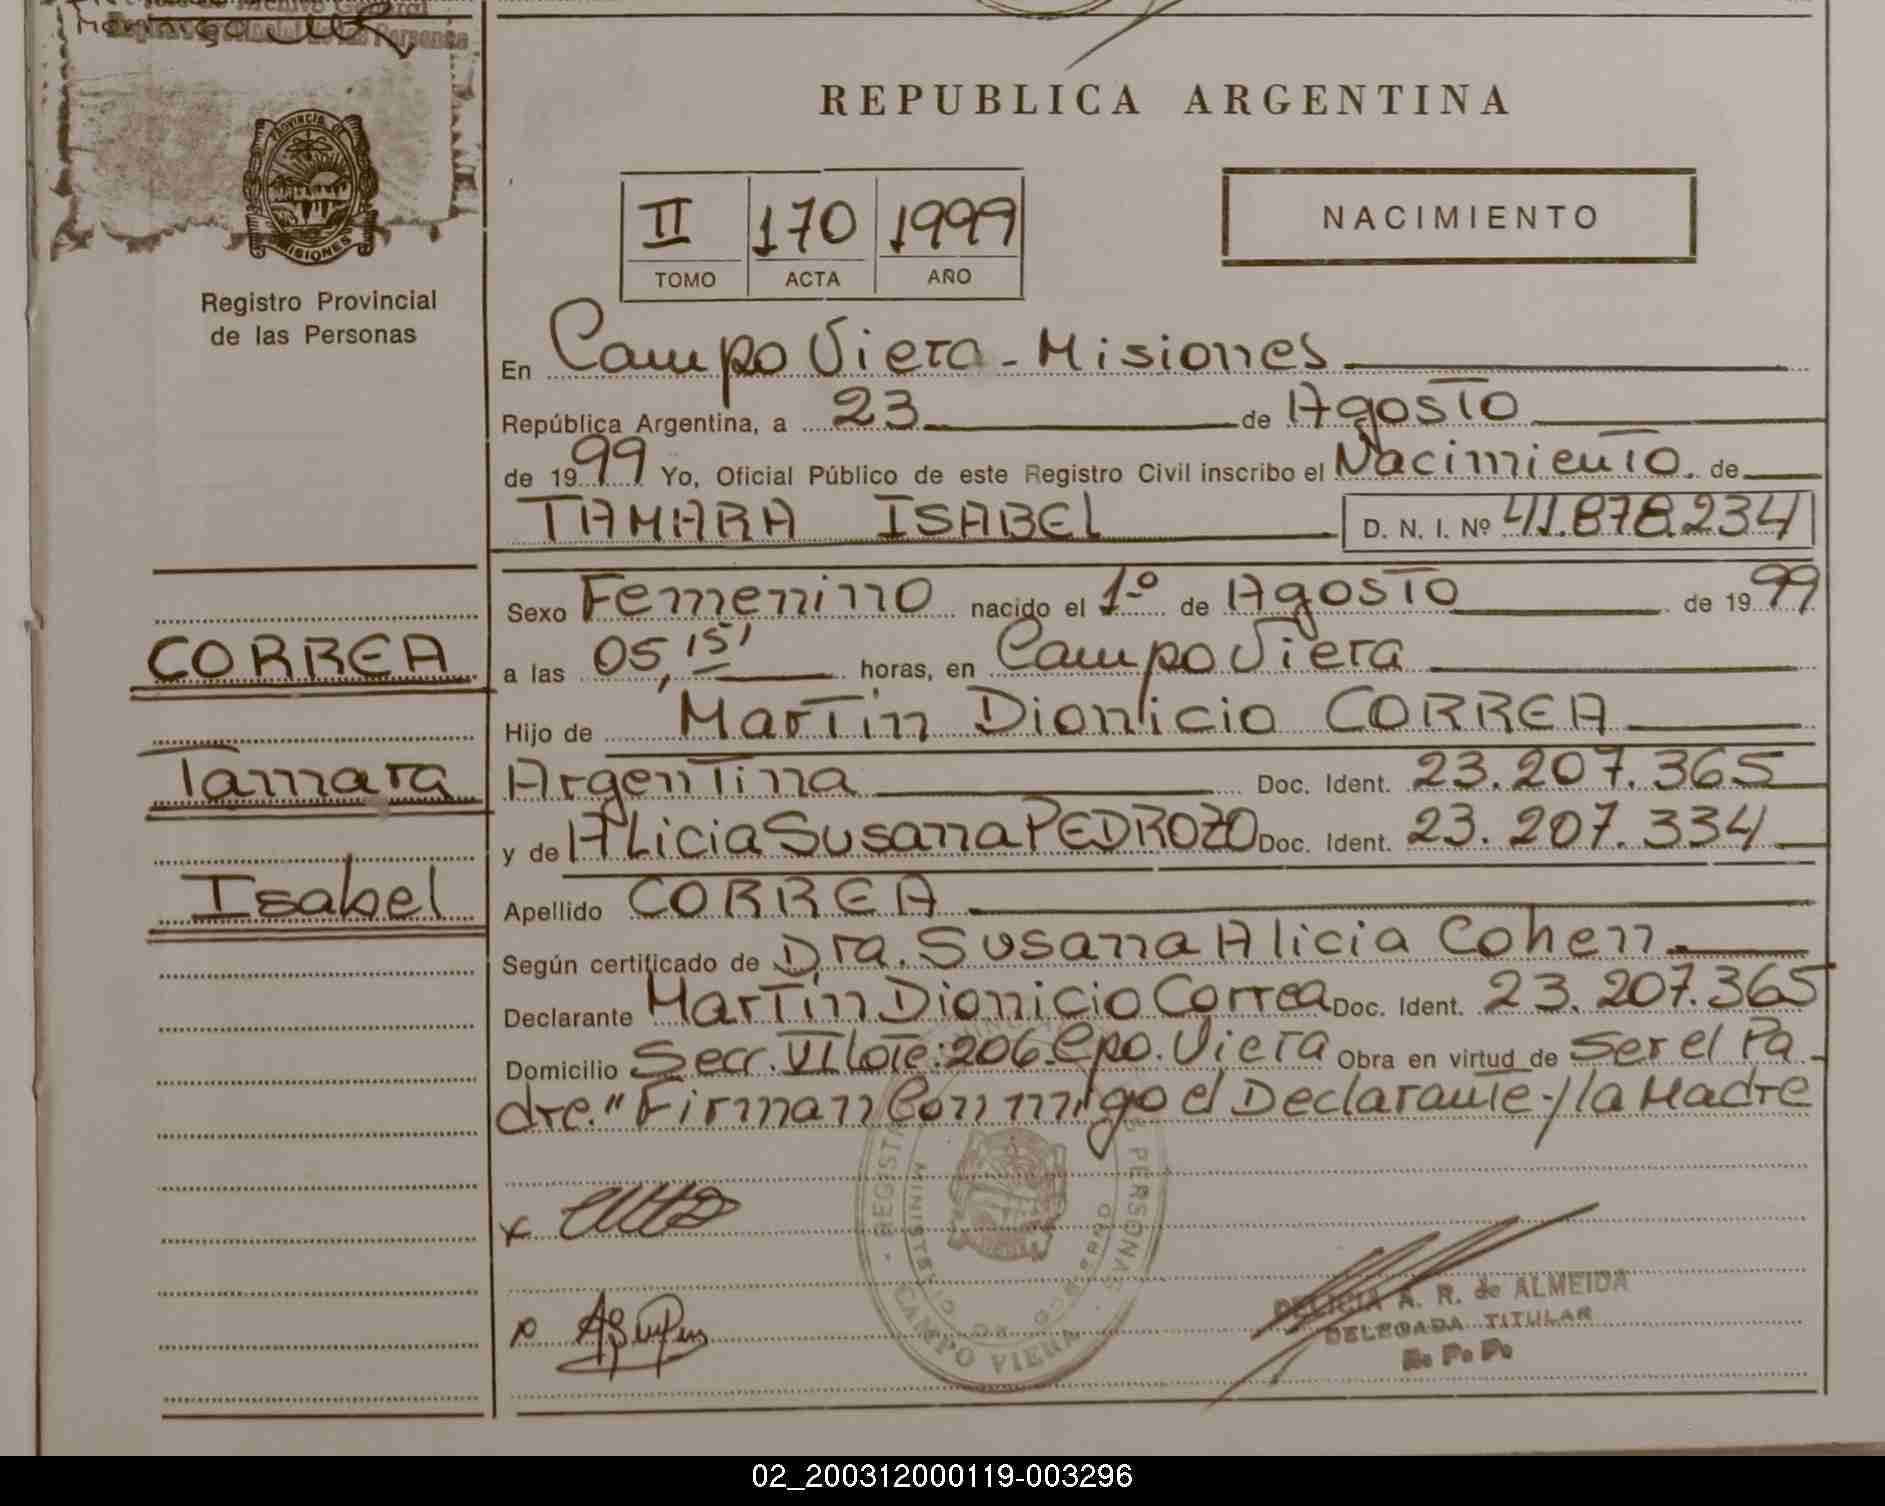 REPUBLICA ARGENTINA
PROVINCIA DE
MISIONES
Registro Provincial
de las Personas
II 170 1999
TOMO ACTA AÑO
NACIMIENTO
En Campo Viera - Misiones
República Argentina, a 23 de Agosto
de 1999 Yo, Oficial Público de este Registro Civil inscribo el Nacimiento. de
TAMARA ISABEL D. N. I. Nº 41.878.234
Sexo Femenino nacido el 1º de Agosto de 1999
CORREA
a las 05, 15' horas, en Campo Viera
Hijo de Martin Dionicio CORREA
Tamara
Argentina Doc. Ident. 23.207.365
y de Alicia Susana PEDROZO Doc. Ident. 23.207.334
Isabel
Apellido CORREA
Según certificado de Dra. Susana Alicia Cohen
Declarante Martin Dionicio Correa Doc. Ident. 23.207.365
Domicilio Secc. VI lote: 206. Cpo. Viera Obra en virtud de Ser el Pa
dre." Firman Conmigo el Declarante y la Madre
CAMPO VIERA
DELICIA A. R. de ALMEIDA
DELEGADA TITULAR
R. P. P.
02_200312000119-003296